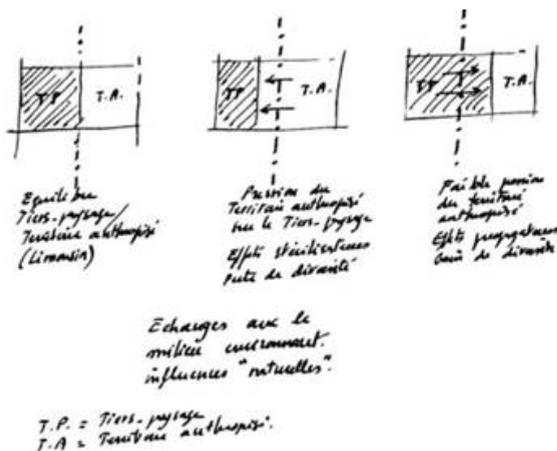 T.P.
T.A.
Equilibre
Tiers-paysage/
Territoire anthropisé
(Limousin)
TP
T.A.
Pression du
Territoire anthropisé
sur le Tiers-paysage
Effets stérilisateurs
Perte de diversité
TP
T.A.
Faible pression
du territoire
anthropisé
Effets propagateurs
Gain de diversité
Echanges avec le
milieu environnant.
influences "naturelles".
T.P. = Tiers-paysage
T.A = Territoire anthropisé.